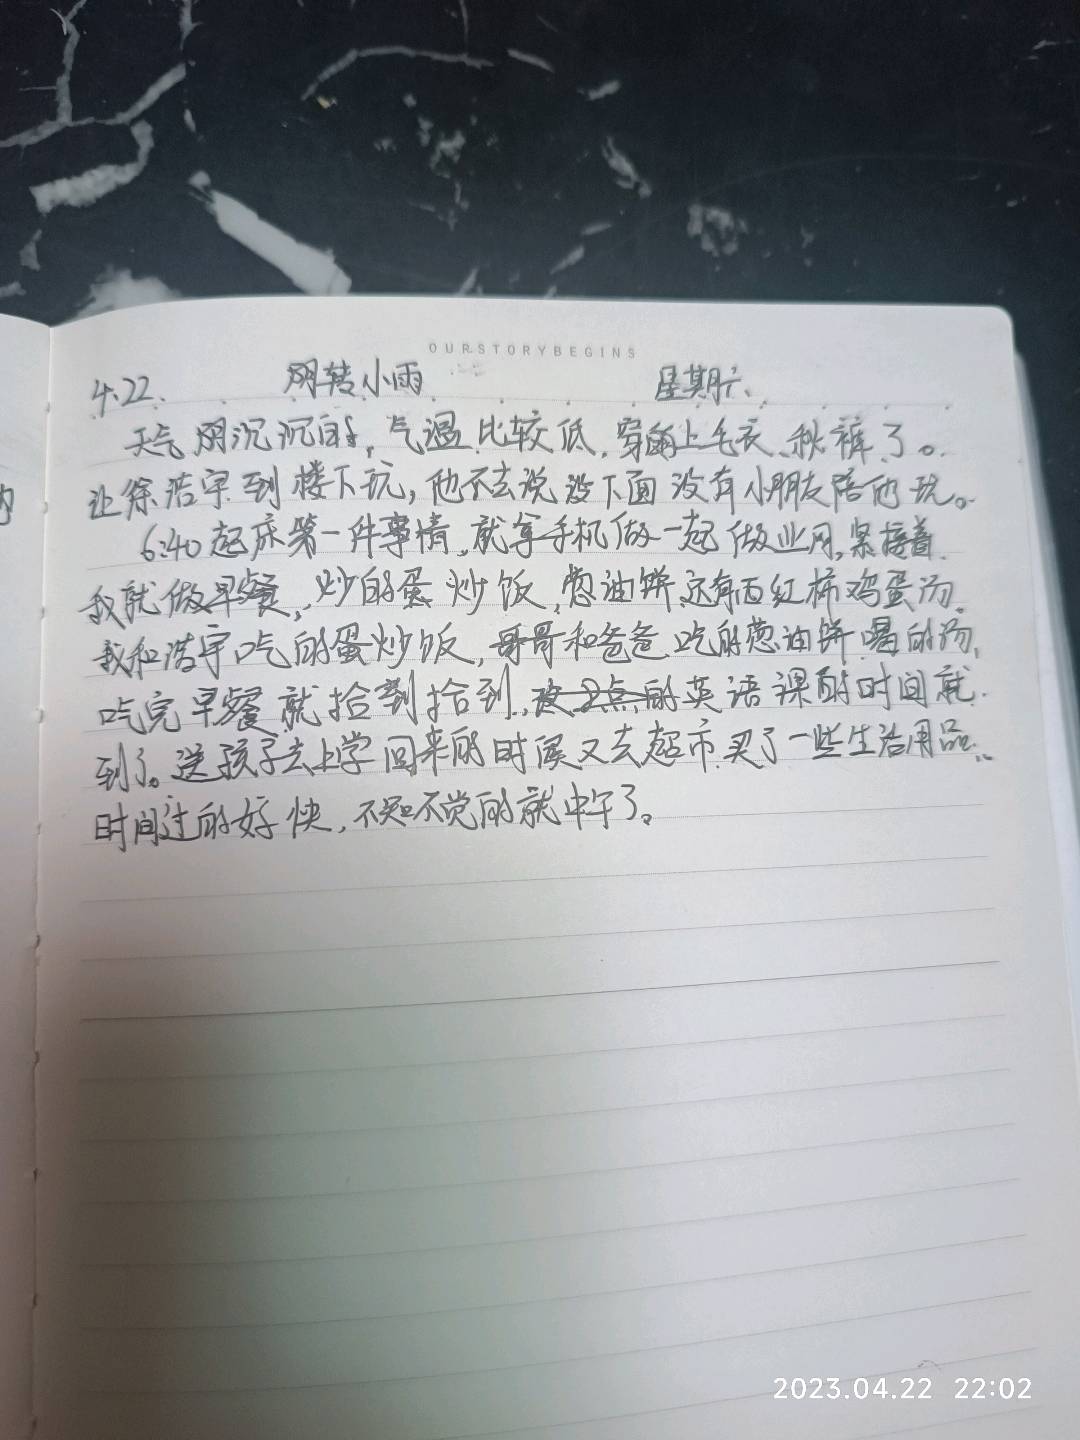 OURSTORYBEGINS
4.22. 阴转小雨 星期六、
天气阴沉沉的，气温比较低，穿上毛衣、秋裤了。
让徐浩宇到楼下玩，他不去说没下面没有小朋友陪他玩。
6:40起床第一件事情，就拿手机做一起做业网，紧接着
我就做早餐，炒的蛋炒饭，葱油饼还有西红柿鸡蛋汤。
我和浩宇吃的蛋炒饭，哥哥和爸爸吃的葱油饼喝的汤，
吃完早餐就拾到拾到，这2点的英语课的时间就
到了。送孩子去上学回来的时候又去超市买了一些生活用品..
时间过的好快，不知不觉的就中午了。
内
2023.04.22 22:02